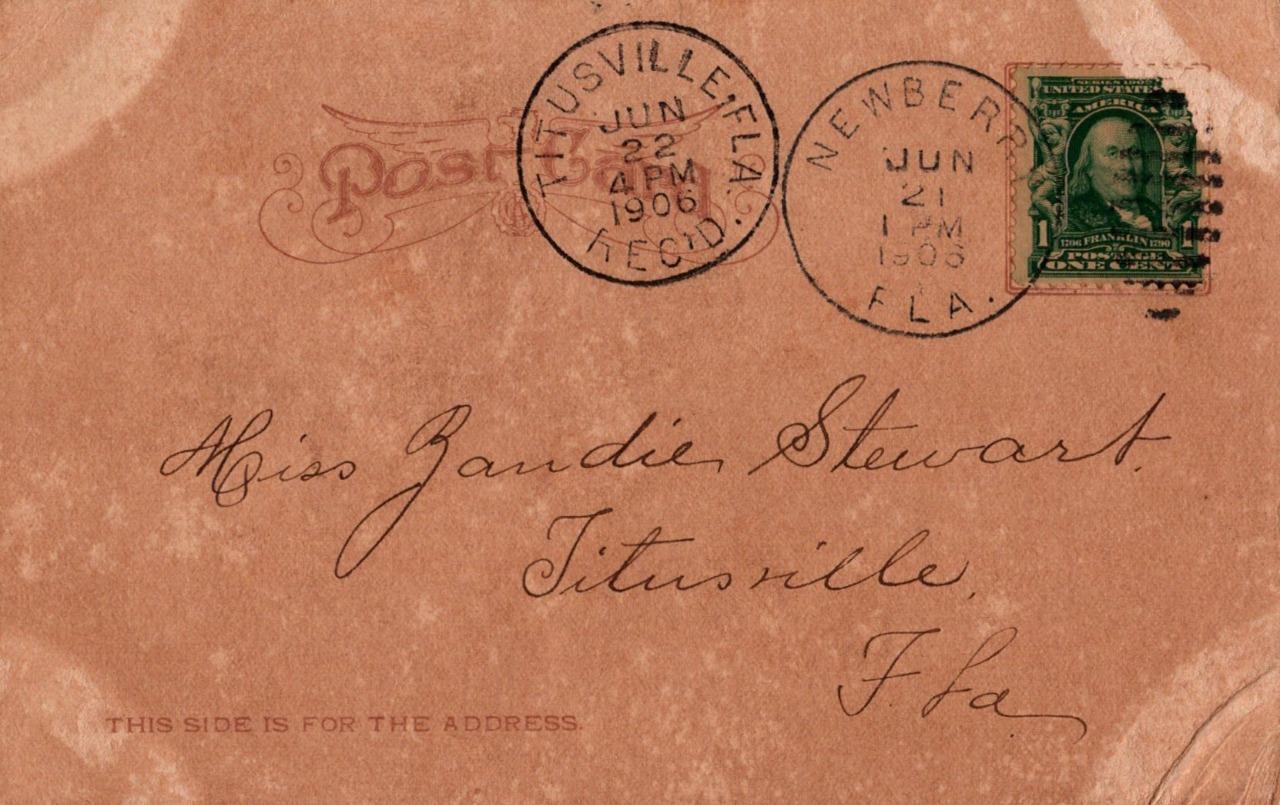 Post Card
TITUSVILLE, FLA.
JUN
22
4 PM
1906
REC'D.
NEWBERRY
JUN
21
1 PM
1906
FLA.
SERIES 1902
UNITED STATES
AMERICA
1 1706 FRANKLIN 1790 1
POSTAGE
ONE CENT
Miss Zandie Stewart.
Titusville,
Fla
THIS SIDE IS FOR THE ADDRESS.